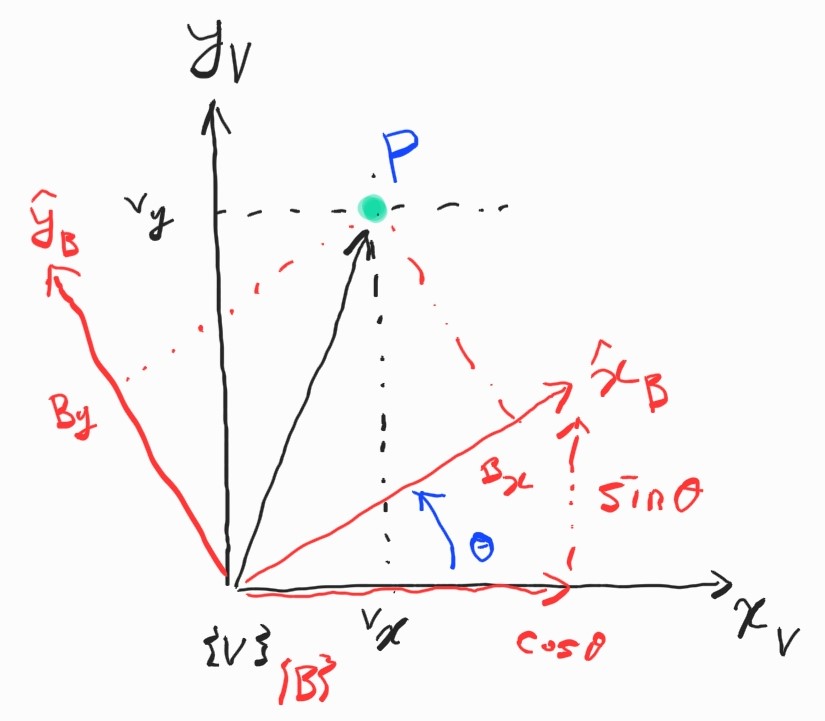 y_V
P
ᵛy
ŷ_B
ᴮy
x̂_B
ᴮx
sinθ
θ
{V}
{B}
ᵛx
cosθ
x_V